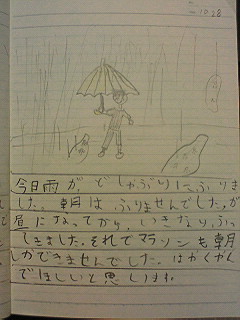 10.28
今日雨が、どしゃぶりにふりま
した。朝は、ふりませんでした。が
昼になってから、いきなりふっ
てきました。それでマラソンも朝
しかできませんでした。はやくやん
でほしいと思します。